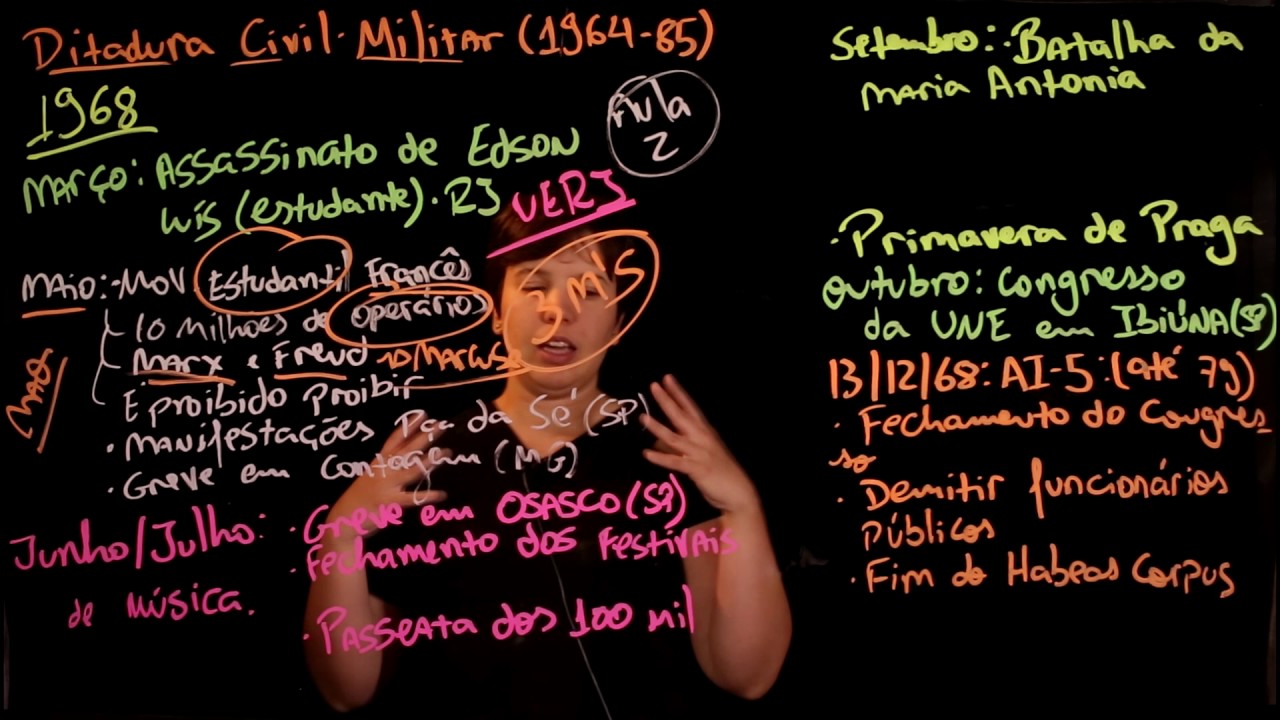 Ditadura Civil-Militar (1964-85)
1968
Aula
2
Março: Assassinato de Edson
Luís (estudante). RJ
UERJ
Maio: -Mov Estudantil Francês
10 milhões de operários
Marx e Freud → Marcuse
3 M's
É proibido proibir
MAO
• Manifestações Pça da Sé (SP)
• Greve em Contagem (MG)
Junho/Julho: • Greve em OSASCO (SP)
• Fechamento dos Festivais
de Música.
• Passeata dos 100 mil
Setembro: • Batalha da
Maria Antonia
• Primavera de Praga
Outubro: Congresso
da UNE em IBIÚNA (SP)
13/12/68: AI-5: (até 79)
• Fechamento do Congres-
so
• Demitir funcionários
Públicos
• Fim do Habeas Corpus